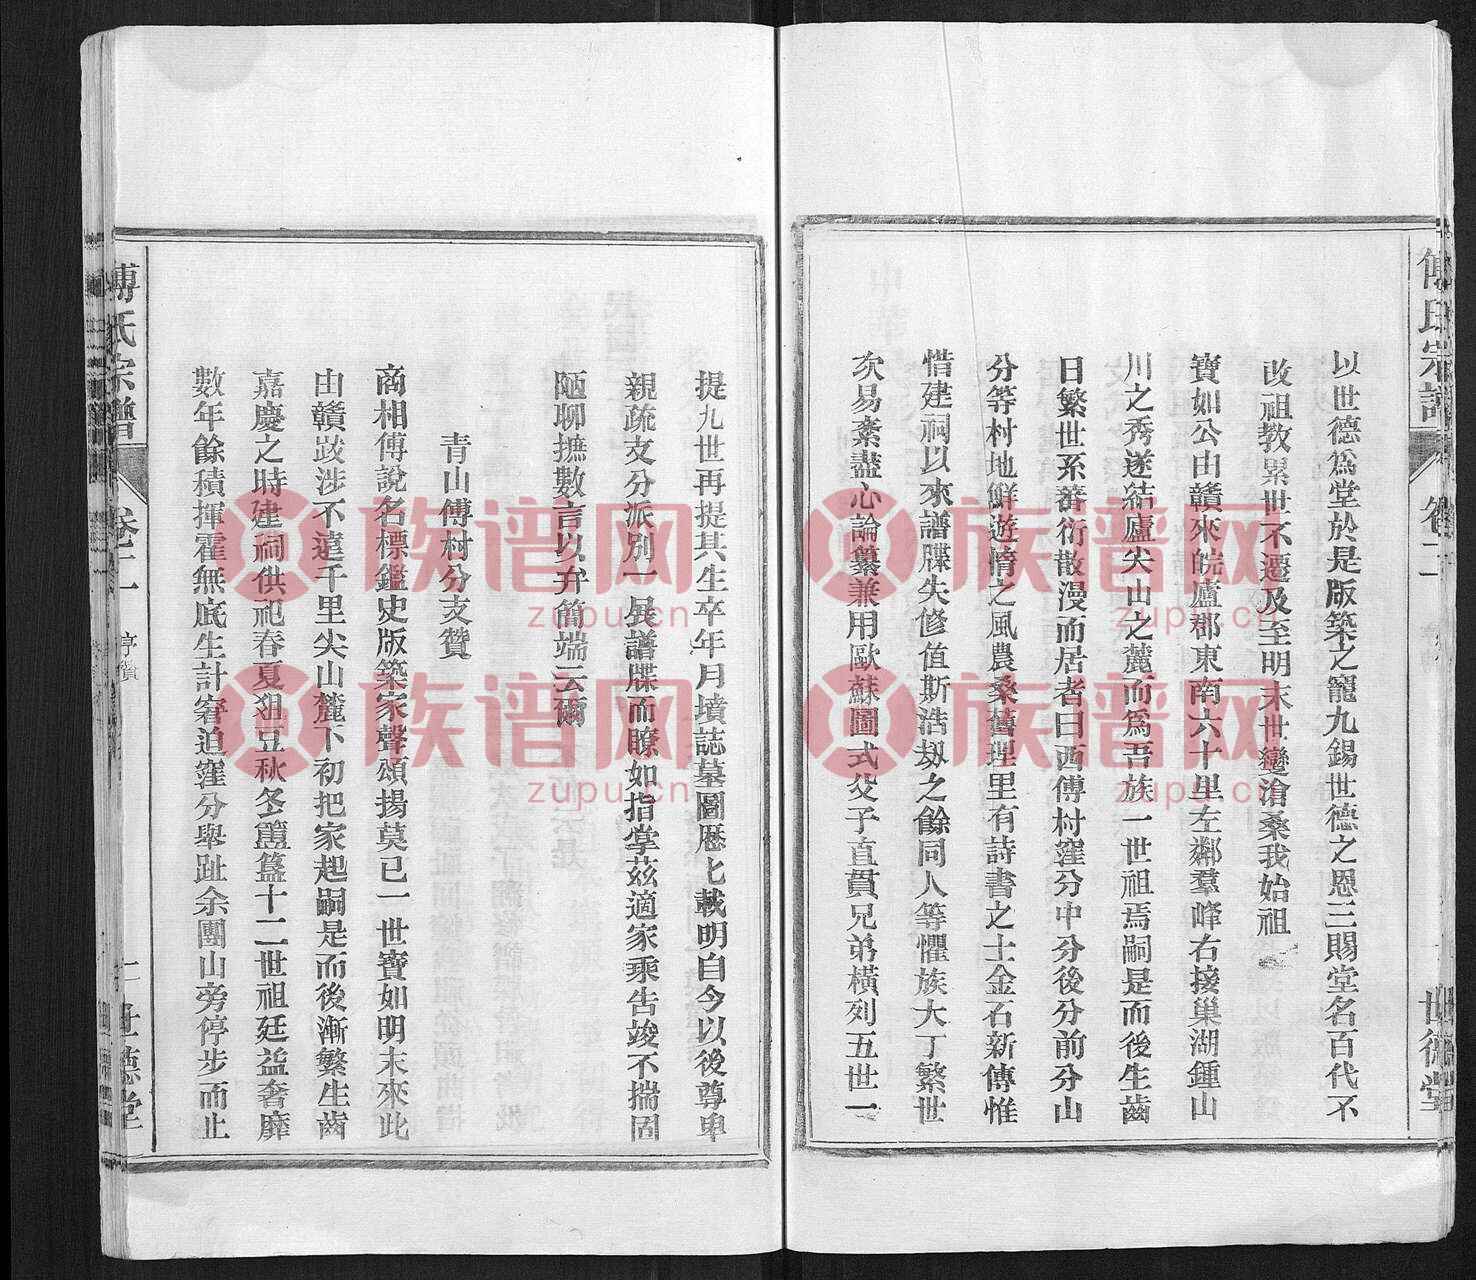 傅氏宗譜
卷二
世德堂
以世德爲堂於是版築之寵九錫世德之恩三賜堂名百代不
改祖教累世不遷及至明末世變滄桑我始祖
寶如公由贛來皖廬郡東南六十里左鄰羣峰右接巢湖鍾山
川之秀遂結廬尖山之麓而爲吾族一世祖焉嗣是而後生齒
日繁世系蕃衍散漫而居者曰西傅村窪分中分後分前分山
分等村地鮮遊惰之風農桑舊理里有詩書之士金石新傳惟
惜建祠以來譜牒失修值斯浩刼之餘同人等懼族大丁繁世
次易紊盡心論纂兼用歐蘇圖式父子直貫兄弟橫列五世一
提九世再提其生卒年月墳誌墓圖歷七載明自今以後尊卑
親疏支分派別一展譜牒而瞭如指掌茲適家乘告竣不揣固
陋聊摭數言以弁簡端云爾
青山傅村分支贊
商相傅說名標鑑史版築家聲頌揚莫已一世寶如明末來此
由贛跋涉不遠千里尖山麓下初把家起嗣是而後漸繁生齒
嘉慶之時建祠供祀春夏俎豆秋冬簠簋十二世祖廷益奢靡
數年餘積揮霍無底生計窘迫窪分舉趾余團山旁停步而止
傅氏宗譜
卷二
序贊
一
世德堂
族谱网
zupu.cn
族谱网
zupu.cn
族谱网
zupu.cn
族谱网
zupu.cn